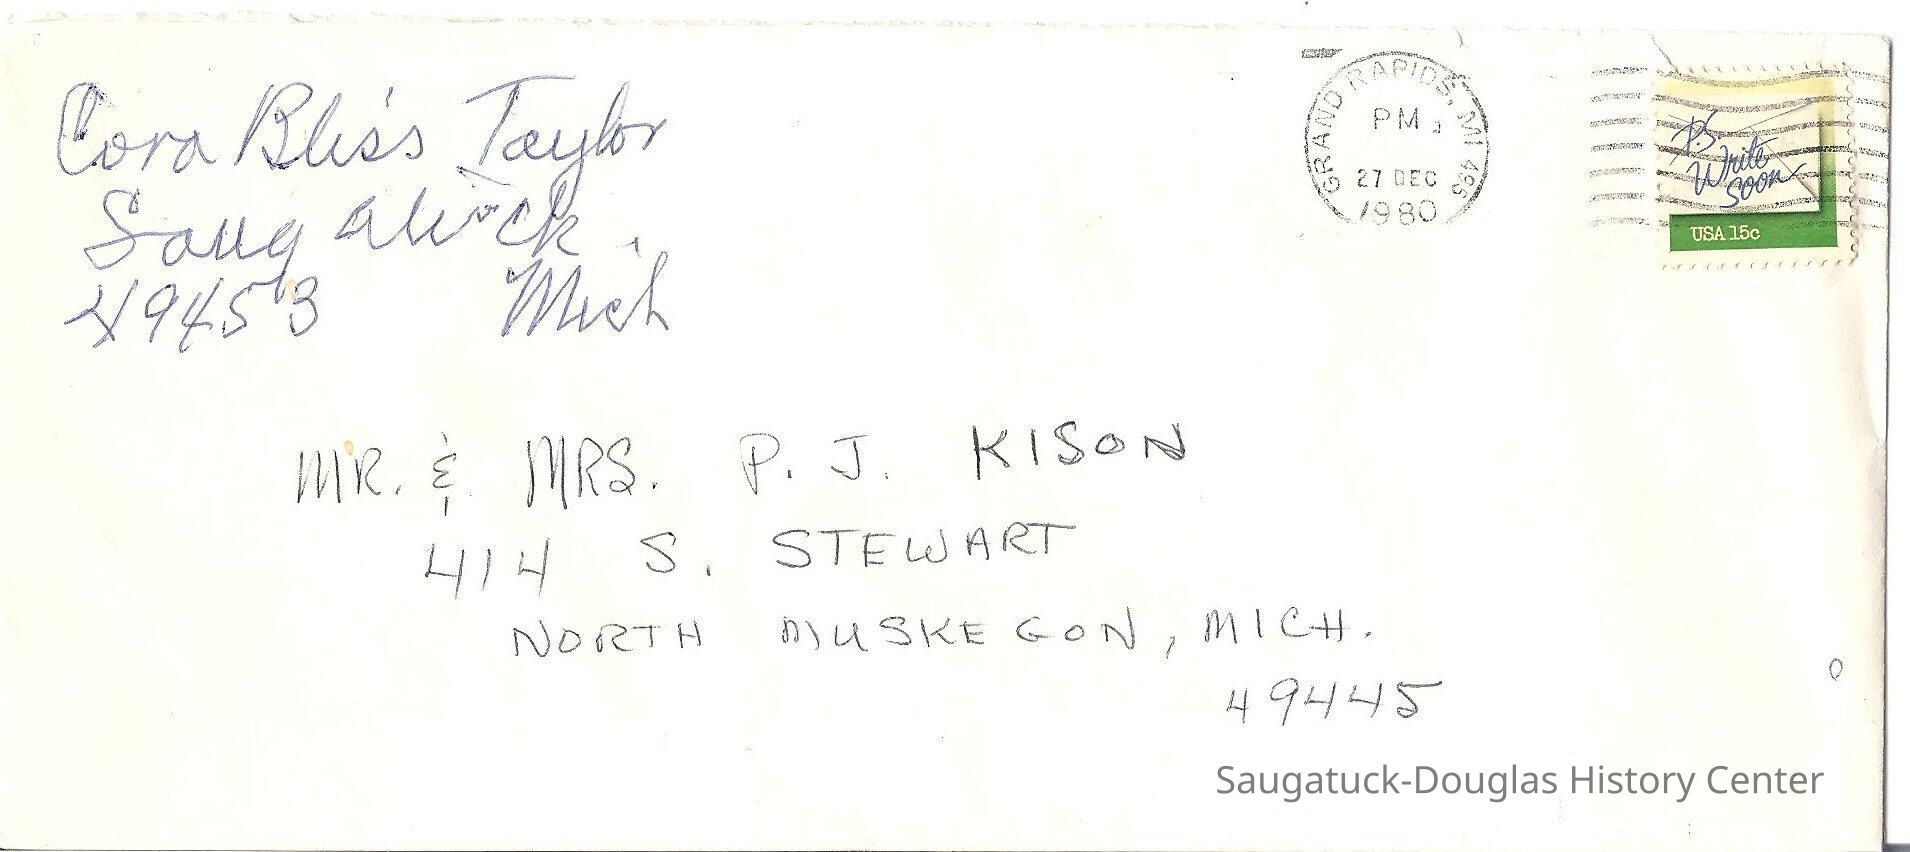 Cora Bliss Taylor
Saugatuck.
49453 Mich
GRAND RAPIDS, MI 495
PM
27 DEC
1980
P.S.
Write
Soon
USA 15c
MR. & MRS. P. J. KISON
414 S. STEWART
NORTH MUSKEGON, MICH.
49445
Saugatuck-Douglas History Center